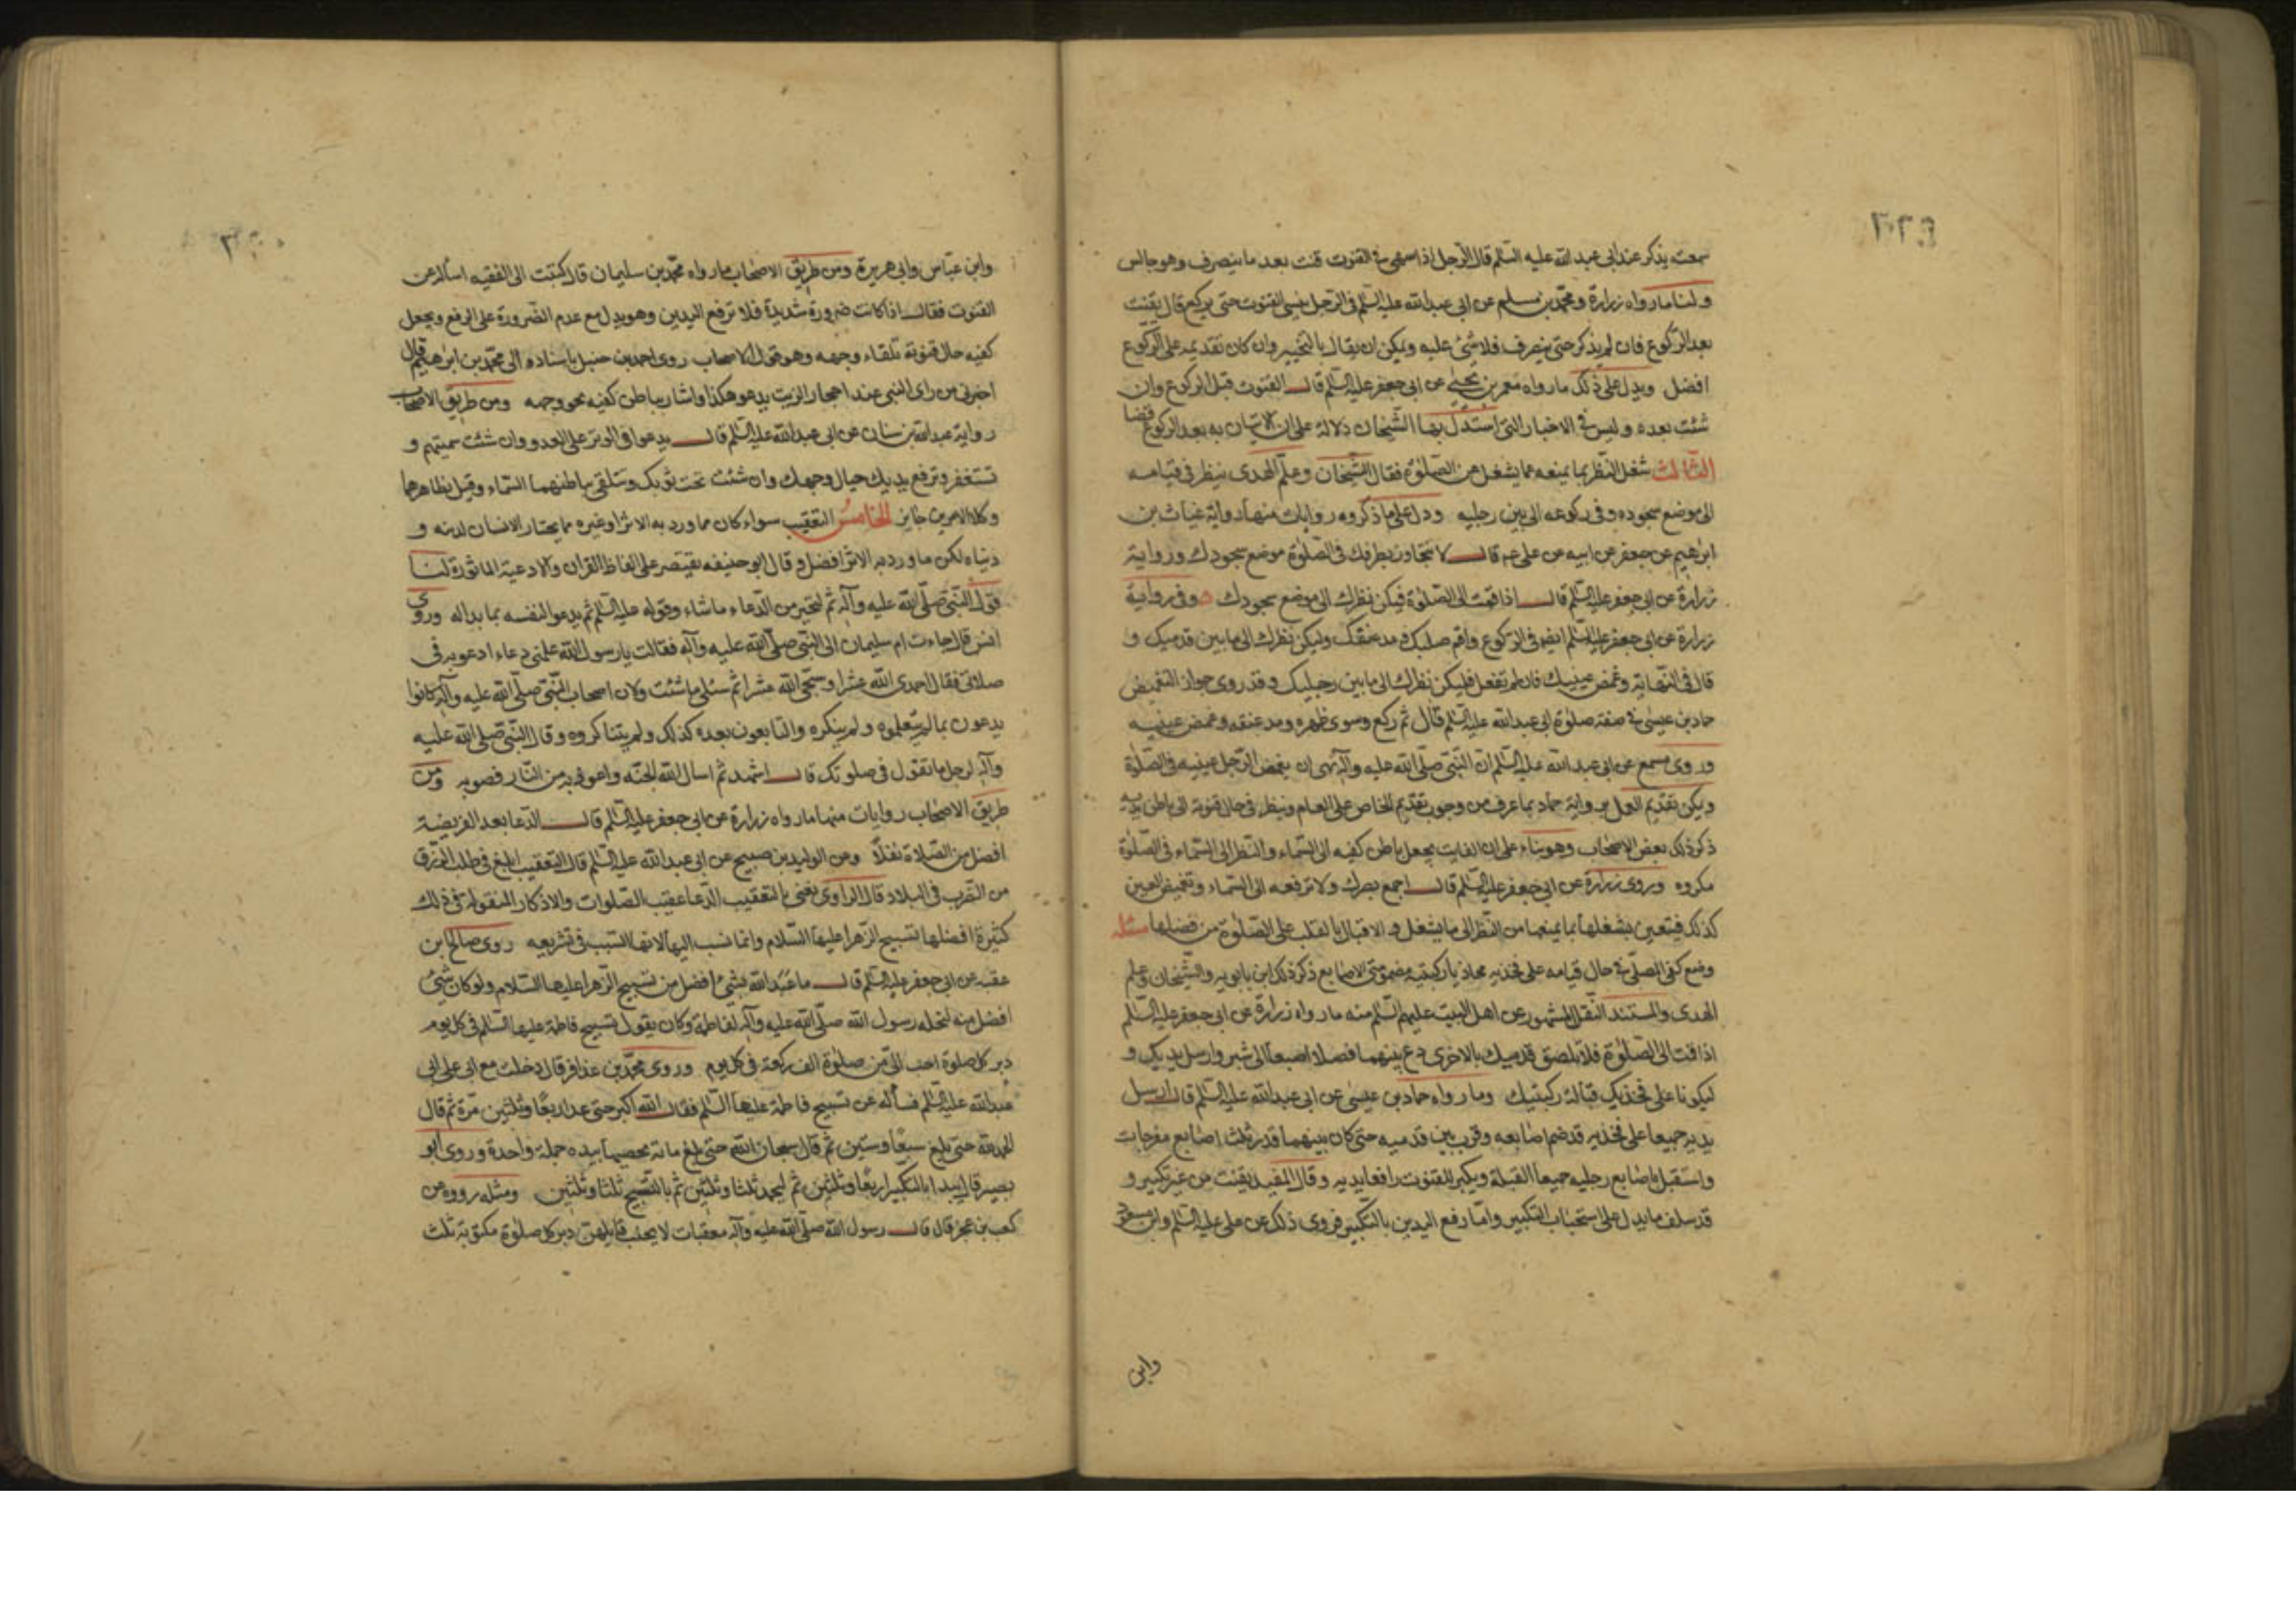 سمعته يذكر عند ابي عبد الله عليه السلم قال الرجل اذا سهى في القنوت قنت بعد ما ينصرف وهو جالس
ولنا ما رواه زرارة ومحمد بن مسلم عن ابي عبد الله عليه السلم في الرجل ينسى القنوت حتى يركع قال يقنت
بعد الركوع فان لم يذكر حتى ينصرف فلا شئ عليه ويمكن ان يقال بالتخيير وان كان تقديمه على الركوع
افضل ويدل على ذلك ما رواه معمر بن يحيى عن ابي جعفر عليه السلم قال القنوت قبل الركوع وان
شئت بعده وليس في الاخبار التي استدل بها الشيخان دلالة على ان الاتيان به بعد الركوع قضا
الثالث شغل النظر بما يمنعه عما يشغل من الصلوة فقال الشيخان وعلم الهدى ينظر في قيامه
الى موضع سجوده وفي ركوعه الى بين رجليه ودل على ما ذكروه روايات منها رواية غياث بن
ابرهيم عن جعفر عن ابيه عن على عم قال لا تتجاوز بطرفك في الصلوة موضع سجودك ورواية
زرارة عن ابي جعفر عليه السلم قال اذا قمت الى الصلوة فيكن نظرك الى موضع سجودك وفي رواية
زرارة عن ابي جعفر عليه السلم ايضا في الركوع واقم صلبك ومد عنقك وليكن نظرك الى ما بين قدميك و
قال في النهاية وغمض عينيك فان لم تفعل فليكن نظرك الى ما بين رجليك وقد روى جواز التغميض
حماد بن عيسى في صفة صلوة ابي عبد الله عليه السلم قال ثم ركع وسوى ظهره ومد عنقه وغمض عينيه
وروى مسمع عن ابي عبد الله عليه السلم ان النبي صلى الله عليه وآله نهى ان يغمض الرجل عينيه في الصلوة
ويمكن تقديم العمل برواية حماد بما عرف من وجوب تقديم الخاص على العام وينظر في حال قنوته الى باطن يديه
ذكر ذلك بعض الاصحاب وهو بناء على ان القانت يجعل باطن كفيه الى السماء والنظر الى السماء في الصلوة
مكروه وروى زرارة عن ابي جعفر عليه السلم قال اجمع بصرك ولا ترفعه الى السماء وتغميض العين
كذلك فيتعين شغلها بما يمنعها من النظر الى ما يشغل والاقبال بالقلب على الصلوة من فضلها مسئلة
وضع كفى المصلى في حال قيامه على فخذيه محاذيا ركبتيه مضمومتى الاصابع ذكر ذلك ابن بابويه والشيخان وعلم
الهدى والمستند النقل المشهور عن اهل البيت عليهم السلم منه ما رواه زرارة عن ابي جعفر عليه السلم
اذا قمت الى الصلوة فلا تلصق قدميك بالاخرى دع بينهما فصلا اصبعا الى شبر وارسل يديك و
ليكونا على فخذيك قبالة ركبتيك وما رواه حماد بن عيسى عن ابي عبد الله عليه السلم قال ارسل
يديه جميعا على فخذيه قد ضم اصابعه وقرب بين قدميه حتى كان بينهما قدر ثلث اصابع مفرجات
واستقبل باصابع رجليه جميعا القبلة ويكبر للقنوت رافعا يديه وقال المفيد يقنت من غير تكبير و
قد سلف ما يدل على استحباب التكبير واما رفع اليدين بالتكبير فروى ذلك عن على عليه السلم وابن مسعود
وابن
وابن عباس وابي هريرة ومن طريق الاصحاب ما رواه محمد بن سليمان قال كتبت الى الفقيه اسأله عن
القنوت فقال اذا كانت ضرورة شديدة فلا ترفع اليدين وهو يدل مع عدم الضرورة على الرفع ويجعل
كفيه حال قنوته تلقاء وجهه وهو قول الاصحاب روى احمد بن حنبل باسناده الى محمد بن ابرهيم قال
اخبرنى من راى النبى عند احجار الزيت يدعو هكذا واشار بباطن كفيه نحو وجهه ومن طريق الاصحاب
رواية عبد الله بن سنان عن ابي عبد الله عليه السلم قال يدعوا في الوتر على العدو وان شئت سميتهم و
تستغفر وترفع يديك حيال وجهك وان شئت تحت ثوبك وتتلقى بباطنهما السماء وقيل بظاهرهما
وكلا الامرين جايز الخامس التعقيب سواء كان مما ورد به الاثر او غيره مما يختار الانسان لدينه و
دنياه لكن ما ورد به الاثر افضل وقال ابو حنيفه يقتصر على الفاظ القران والادعية الماثورة لنا
قول النبى صلى الله عليه وآله ثم ليتخير من الدعاء ما شاء وقوله عليه السلم ثم يدعو لنفسه بما بدا له وروى
انس قال جاءت ام سليمان الى النبى صلى الله عليه وآله فقالت يا رسول الله علمنى دعاء ادعو به في
صلاتى فقال احمدى الله عشرا وسبحى الله عشرا ثم سئلى ما شئت ولان اصحاب النبى صلى الله عليه وآله كانوا
يدعون بما لم يتعلموه ولم ينكره والتابعون بعده كذلك ولم يتناكروه وقال النبى صلى الله عليه
وآله لرجل ما تقول في صلوتك قال اشهد ثم اسال الله الجنه واعوذ به من النار فصوبه ومن
طريق الاصحاب روايات منها ما رواه زرارة عن ابي جعفر عليه السلم قال الدعا بعد الفريضة
افضل من الصلاة نفلا وعن الوليد بن صبيح عن ابي عبد الله عليه السلم قال التعقيب ابلغ في طلب الرزق
من الضرب في البلاد قال الراوى يعنى بالتعقيب الدعا عقيب الصلوات والاذكار المنقولة في ذلك
كثيرة افضلها تسبيح الزهرا عليها السلام وانما نسب اليها لانها السبب في تشريعه روى صالح بن
عقبه عن ابي جعفر عليه السلم قال ما عبد الله بشئ افضل من تسبيح الزهرا عليها السلام ولو كان شئ
افضل منه لنحله رسول الله صلى الله عليه وآله لفاطمة وكان يقول تسبيح فاطمة عليها السلم في كل يوم
دبر كل صلوة احب الى من صلوة الف ركعة في كل يوم وروى محمد بن عذافر قال دخلت مع ابى على ابى
عبد الله عليه السلم فسأله عن تسبيح فاطمة عليها السلم فقال الله اكبر حتى عد اربعا وثلثين مرة ثم قال
الحمد لله حتى بلغ سبعا وستين ثم قال سبحان الله حتى بلغ مائة يحصيها بيده جملة واحدة وروى ابو
بصير قال يبدا بالتكبير اربعا وثلثين ثم ليحمد ثلثا وثلثين ثم بالتسبيح ثلثا وثلثين ومثله رووه عن
كعب بن عجز قال قال رسول الله صلى الله عليه وآله معقبات لا يخب قايلهن دبر كل صلوة مكتوبة ثلث